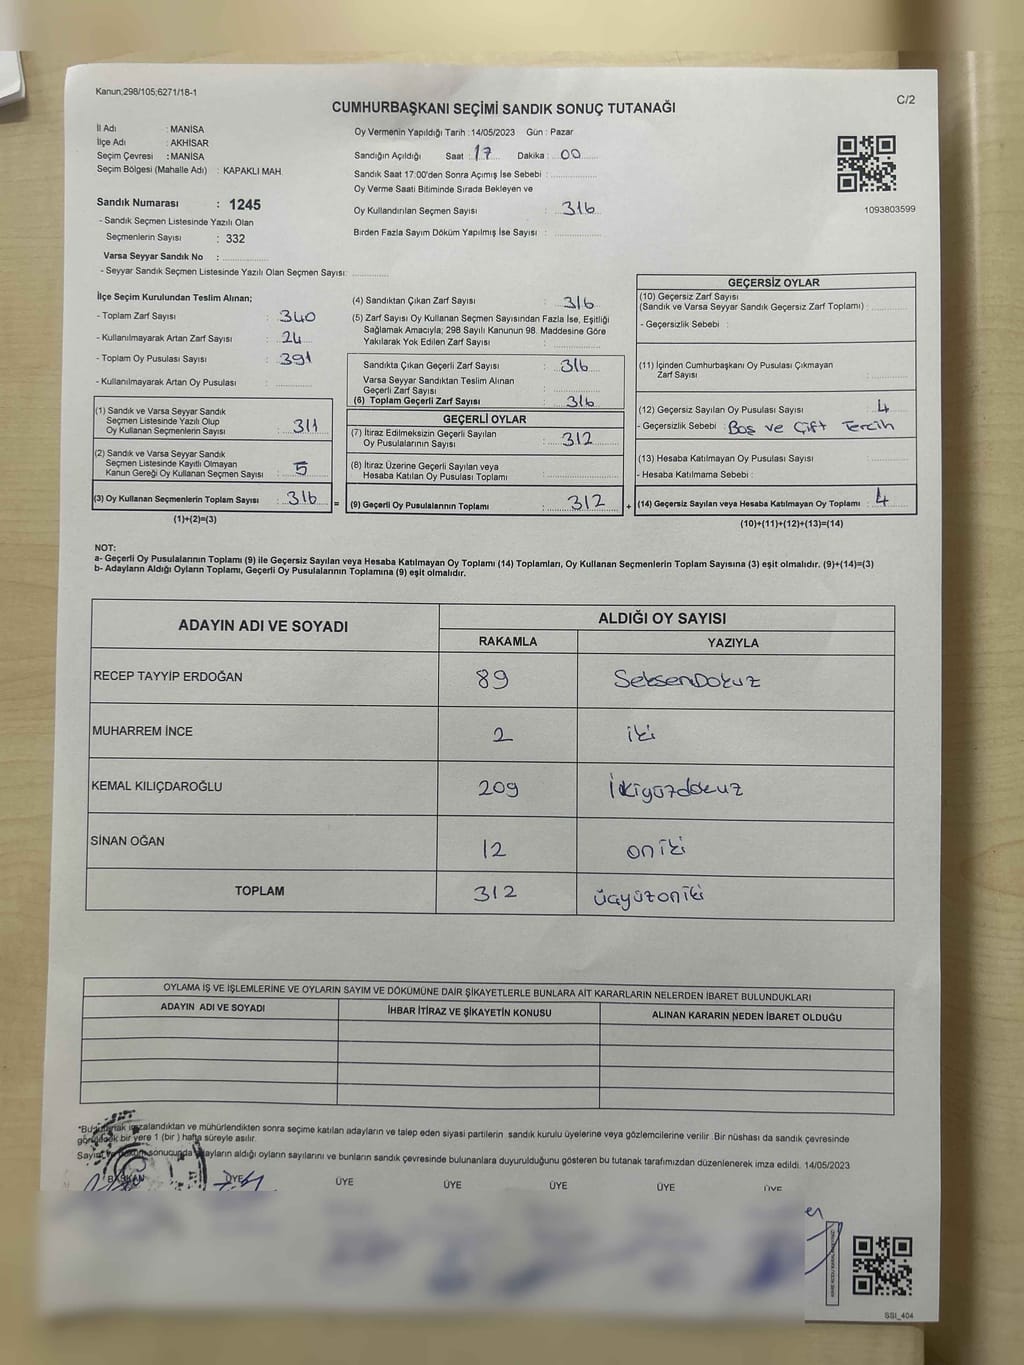 Kanun;298/105;6271/18-1
C/2
CUMHURBAŞKANI SEÇİMİ SANDIK SONUÇ TUTANAĞI
İl Adı : MANİSA
İlçe Adı : AKHİSAR
Seçim Çevresi : MANİSA
Seçim Bölgesi (Mahalle Adı) : KAPAKLI MAH.
Sandık Numarası : 1245
- Sandık Seçmen Listesinde Yazılı Olan
Seçmenlerin Sayısı : 332
Varsa Seyyar Sandık No :
- Seyyar Sandık Seçmen Listesinde Yazılı Olan Seçmen Sayısı:
Oy Vermenin Yapıldığı Tarih :14/05/2023 Gün : Pazar
Sandığın Açıldığı Saat : 17 Dakika : 00
Sandık Saat 17:00'den Sonra Açımış İse Sebebi :
Oy Verme Saati Bitiminde Sırada Bekleyen ve
Oy Kullandırılan Seçmen Sayısı : 316
Birden Fazla Sayım Döküm Yapılmış İse Sayısı :
1093803599
İlçe Seçim Kurulundan Teslim Alınan;
- Toplam Zarf Sayısı : 340
- Kullanılmayarak Artan Zarf Sayısı : 24
- Toplam Oy Pusulası Sayısı : 391
- Kullanılmayarak Artan Oy Pusulası :
(1) Sandık ve Varsa Seyyar Sandık
Seçmen Listesinde Yazılı Olup
Oy Kullanan Seçmenlerin Sayısı : 311
(2) Sandık ve Varsa Seyyar Sandık
Seçmen Listesinde Kayıtlı Olmayan
Kanun Gereği Oy Kullanan Seçmen Sayısı : 5
(3) Oy Kullanan Seçmenlerin Toplam Sayısı : 316 =
(1)+(2)=(3)
(4) Sandıktan Çıkan Zarf Sayısı : 316
(5) Zarf Sayısı Oy Kullanan Seçmen Sayısından Fazla İse, Eşitliği
Sağlamak Amacıyla; 298 Sayılı Kanunun 98. Maddesine Göre
Yakılarak Yok Edilen Zarf Sayısı :
Sandıkta Çıkan Geçerli Zarf Sayısı : 316
Varsa Seyyar Sandıktan Teslim Alınan
Geçerli Zarf Sayısı :
(6) Toplam Geçerli Zarf Sayısı : 316
GEÇERLİ OYLAR
(7) İtiraz Edilmeksizin Geçerli Sayılan
Oy Pusulalarının Sayısı : 312
(8) İtiraz Üzerine Geçerli Sayılan veya
Hesaba Katılan Oy Pusulası Toplamı :
(9) Geçerli Oy Pusulalarının Toplamı : 312 +
GEÇERSİZ OYLAR
(10) Geçersiz Zarf Sayısı
(Sandık ve Varsa Seyyar Sandık Geçersiz Zarf Toplamı) :
- Geçersizlik Sebebi :
(11) İçinden Cumhurbaşkanı Oy Pusulası Çıkmayan
Zarf Sayısı :
(12) Geçersiz Sayılan Oy Pusulası Sayısı : 4
- Geçersizlik Sebebi : Boş ve Çift Tercih
(13) Hesaba Katılmayan Oy Pusulası Sayısı :
- Hesaba Katılmama Sebebi :
(14) Geçersiz Sayılan veya Hesaba Katılmayan Oy Toplamı : 4
(10)+(11)+(12)+(13)=(14)
NOT:
a- Geçerli Oy Pusulalarının Toplamı (9) ile Geçersiz Sayılan veya Hesaba Katılmayan Oy Toplamı (14) Toplamları, Oy Kullanan Seçmenlerin Toplam Sayısına (3) eşit olmalıdır. (9)+(14)=(3)
b- Adayların Aldığı Oyların Toplamı, Geçerli Oy Pusulalarının Toplamına (9) eşit olmalıdır.
ADAYIN ADI VE SOYADI
ALDIĞI OY SAYISI
RAKAMLA YAZIYLA
RECEP TAYYİP ERDOĞAN 89 SeksenDokuz
MUHARREM İNCE 2 iki
KEMAL KILIÇDAROĞLU 209 İkiyüzdokuz
SİNAN OĞAN 12 oniki
TOPLAM 312 üçyüzoniki
OYLAMA İŞ VE İŞLEMLERİNE VE OYLARIN SAYIM VE DÖKÜMÜNE DAİR ŞİKAYETLERLE BUNLARA AİT KARARLARIN NELERDEN İBARET BULUNDUKLARI
ADAYIN ADI VE SOYADI İHBAR İTİRAZ VE ŞİKAYETİN KONUSU ALINAN KARARIN NEDEN İBARET OLDUĞU
imzalandıktan ve mühürlendikten sonra seçime katılan adayların ve talep eden siyasi partilerin sandık kurulu üyelerine veya gözlemcilerine verilir. Bir nüshası da sandık çevresinde
bir yere 1 (bir ) hafta süreyle asılır.
sonucunda adayların aldığı oyların sayılarını ve bunların sandık çevresinde bulunanlara duyurulduğunu gösteren bu tutanak tarafımızdan düzenlenerek imza edildi. 14/05/2023
BAŞKAN ÜYE ÜYE ÜYE ÜYE ÜYE ÜYE
SSI_404